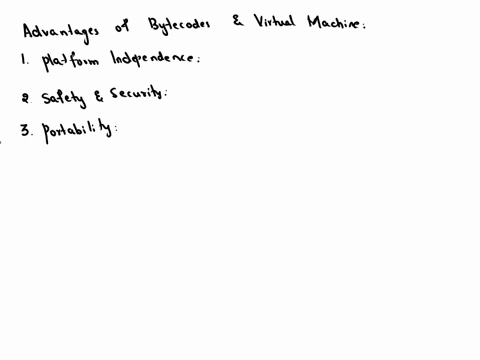 Advantages of Bytecodes & Virtual Machine:
1. Platform Independence:
2. Safety & Security:
3. Portability: